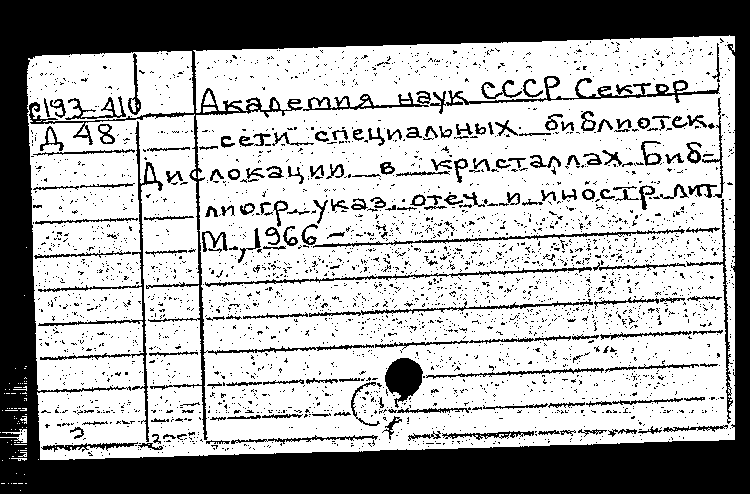 с193-410 Академия наук СССР. Сектор
Д 48 сети специальных библиотек.
Дислокации в кристаллах. Биб-
лиогр. указ. отеч. и иностр. лит.
М., 1966 –